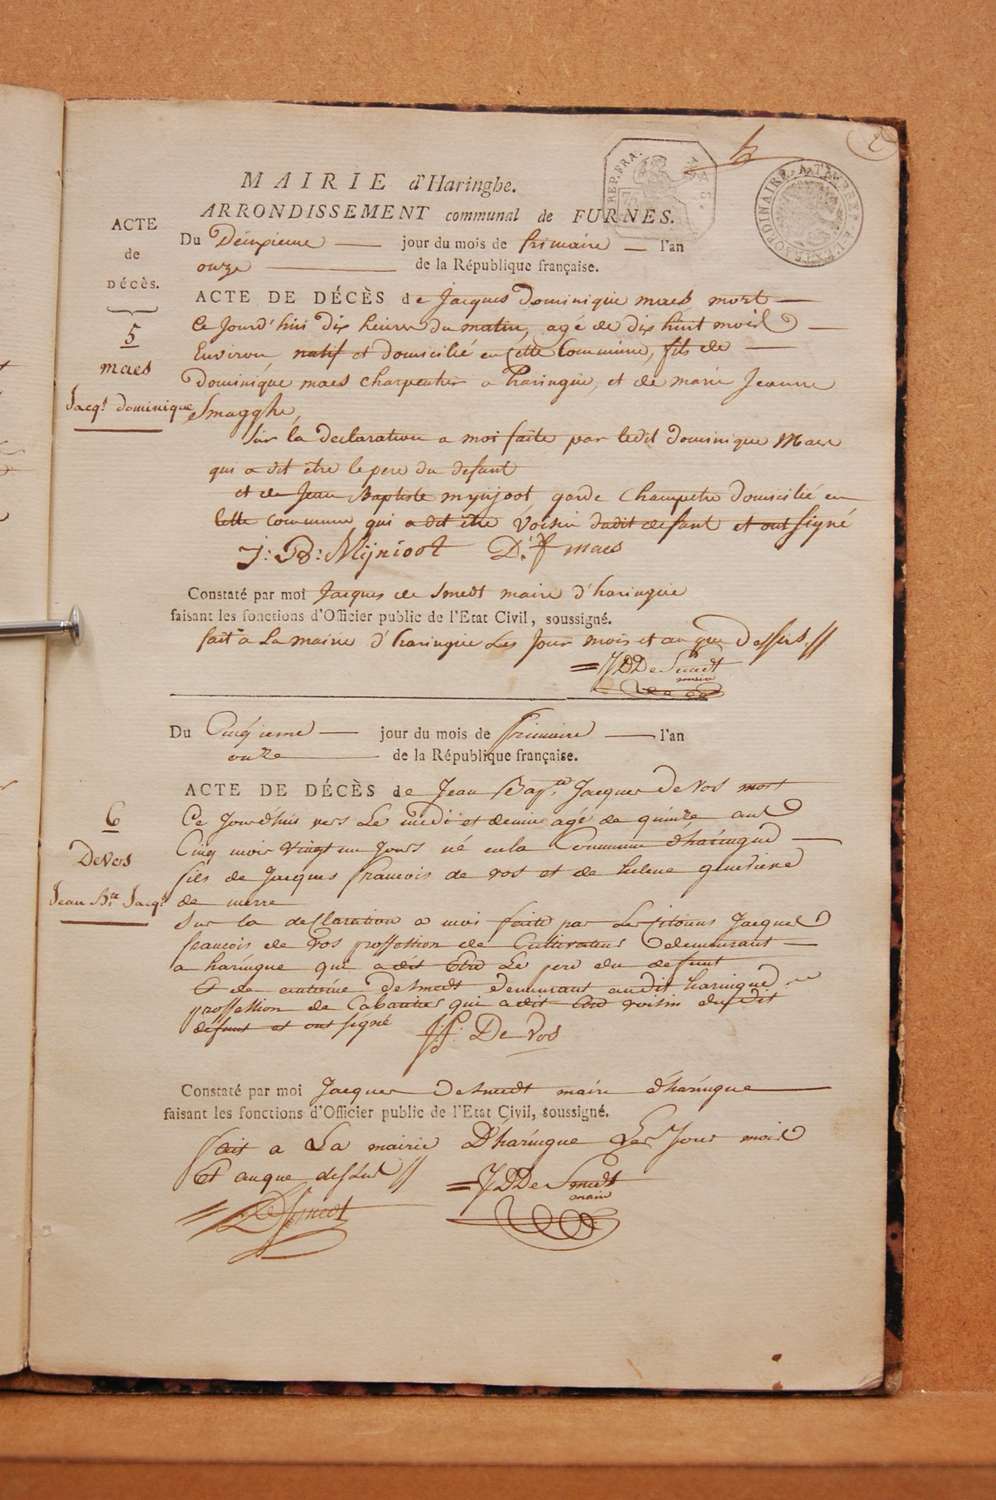 2
MAIRIE d'Haringhe.
REP. FRA.
ARRONDISSEMENT communal de FURNES.
ACTE
de
DÉCÈS.
Du Deuxieme jour du mois de frimaire l'an
onze de la République française.
ACTE DE DÉCÈS de Jacques Dominique maes mort
5
maes
Jacqs dominique
Ce Jourd'hui dix heures du matin, agé de dix huit mois
Environ natif et domicilié en cette Commune, fils de
Dominique maes charpentier a haringue, et de marie Jeanne
Smagghe,
Sur la declaration a moi faite par ledit dominique Maes
qui a dit être le pere du defunt
et de Jean Baptiste mynjoot garde Champetre domicilié en
cette commune qui a dit être voisin dudit defunt et ont signé
J: B: Mijnioot D. f maes
Constaté par moi Jacques de Smedt maire d'haringue
faisant les fonctions d'Officier public de l'Etat Civil, soussigné.
fait a La mairie d'haringue Les Jour mois et an que dessus
JDDe Smedt
maire
Du Cinqieme jour du mois de frimaire l'an
onze de la République française.
ACTE DE DÉCÈS de Jean Bapte Jacques De Vos mort
6
De Vos
Jean Bte Jacqs
Ce Jourdhui vers Le midi et demie agé de quinze ans
Cinq mois vingt un Jours né en la Commune d'haringue
fils de Jacques francois de vos et de helene genevieve
de merre
Sur la declaration a moi faite par Le Citoiens Jacques
francois de Vos proffession de Cultivateur demeurant
a haringue qui a dit Etre Le pere du defunt
Et de desmedt demeurant audit haringue
proffession de Cabartier qui a dit Etre voisin dudit
defunt et ont signé
J: f: De Vos
Constaté par moi Jacques Desmedt maire d'haringue
faisant les fonctions d'Officier public de l'Etat Civil, soussigné.
fait a La mairie D'haringue Les Jour mois
Et an que dessus
JDDe Smedt
maire
De Smedt